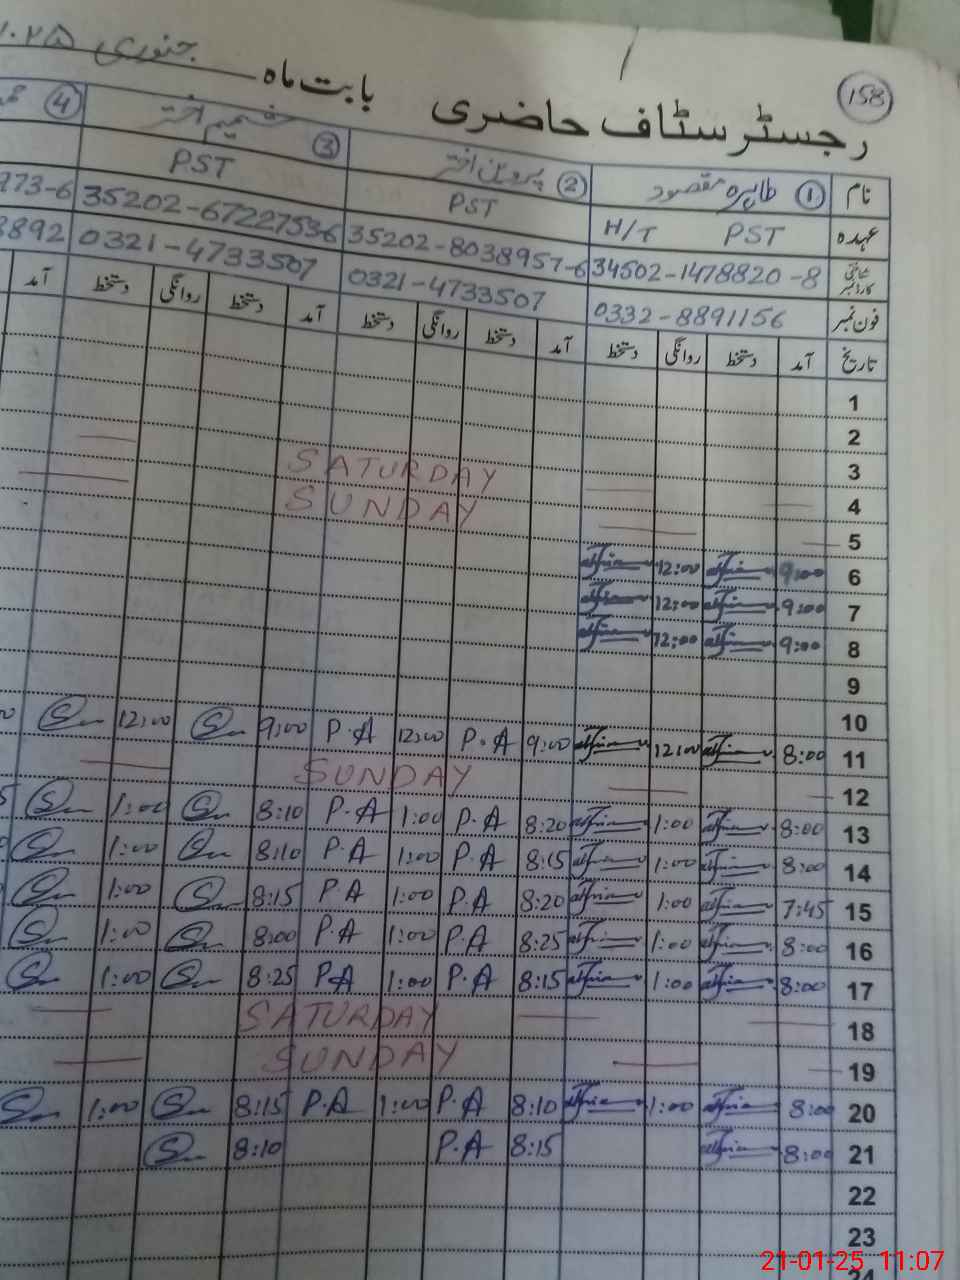 158
رجسٹر سٹاف حاضری بابت ماہ جنوری
نام ① طاہرہ مقصود ② پروین اختر ③ شمیم اختر ④
عہدہ H/T PST PST PST
شناختی کارڈ نمبر 34502-1478820-8 35202-8038957-6 35202-67227536 973-6
فون نمبر 0332-8891156 0321-4733507 0321-4733507 8892
تاریخ آمد دستخط روانگی دستخط آمد دستخط روانگی دستخط آمد دستخط روانگی دستخط آمد
1
2
3
4 SATURDAY
5 SUNDAY
6 9:00 12:00
7 9:00 12:00
8 9:00 12:00
9
10
11 8:00 12:00 9:00 P.A 12:00 P.A 9:00 12:00
12 SUNDAY
13 8:00 1:00 8:20 P.A 1:00 P.A 8:10 1:00
14 8:00 1:00 8:15 P.A 1:00 P.A 8:10 1:00
15 7:45 1:00 8:20 P.A 1:00 P.A 8:15 1:00
16 8:00 1:00 8:25 P.A 1:00 P.A 8:00 1:00
17 8:00 1:00 8:15 P.A 1:00 P.A 8:25 1:00
18 SATURDAY
19 SUNDAY
20 8:00 1:00 8:10 P.A 1:00 P.A 8:15 1:00
21 8:00 8:15 P.A 8:10
22
23
24
21-01-25 11:07